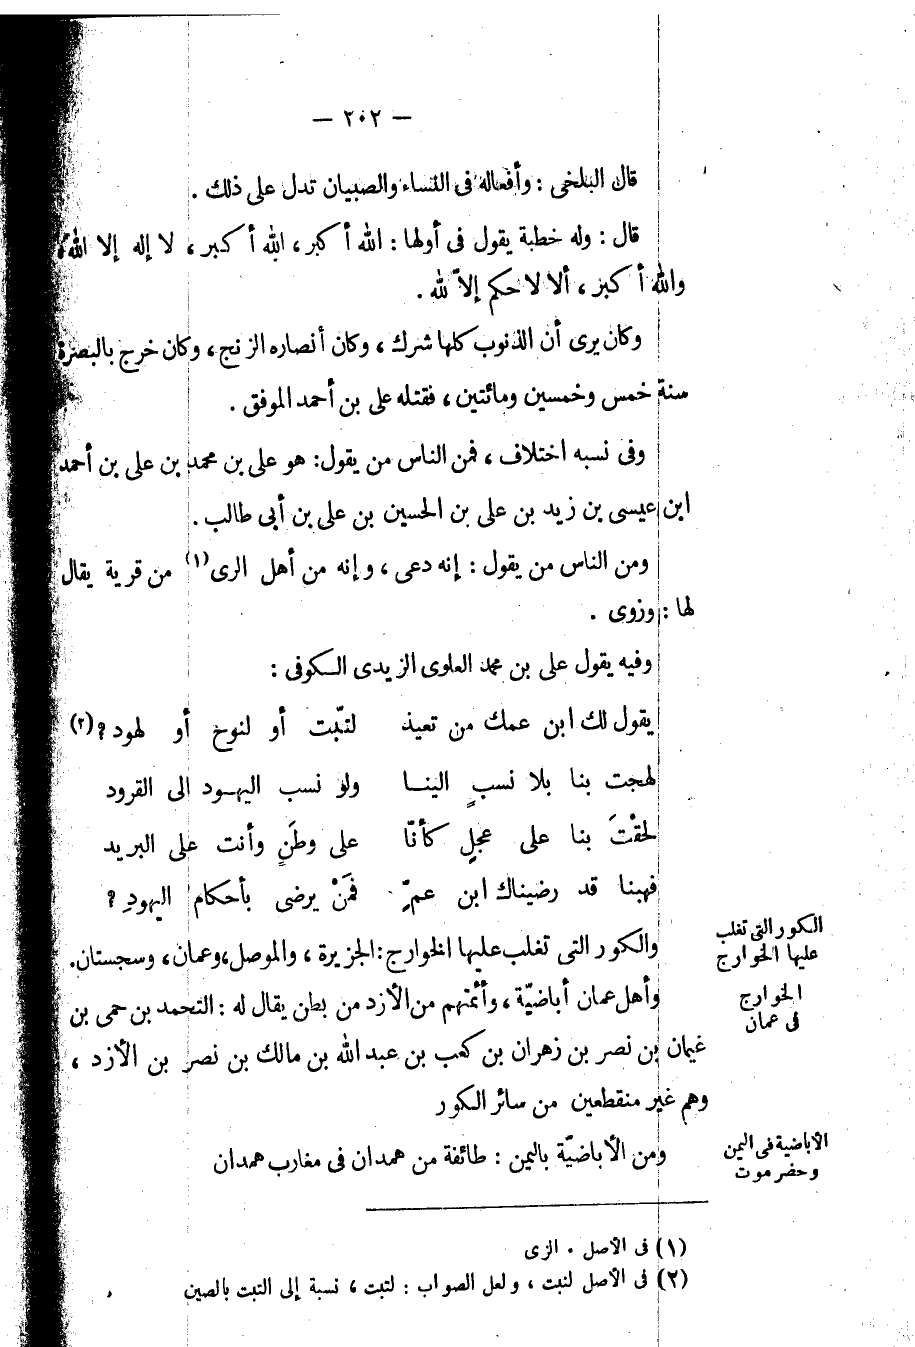 — ٢٠٢ —
قال البلخى : وأفعاله فى النساء والصبيان تدل على ذلك .
قال : وله خطبة يقول فى أولها : الله أكبر ، الله أكبر ، لا إله إلا الله ،
والله أكبر ، ألا لا حكم إلاّ لله .
وكان يرى أن الذنوب كلها شرك ، وكان أنصاره الزنج ، وكان خرج بالبصرة
سنة خمس وخمسين ومائتين ، فقتله على بن أحمد الموفق .
وفى نسبه اختلاف ، فمن الناس من يقول : هو على بن محمد بن على بن أحمد
ابن عيسى بن زيد بن على بن الحسين بن على بن أبى طالب .
ومن الناس من يقول : إنه دعى ، وإنه من أهل الرى (١) من قرية يقال
لها : وزوى .
وفيه يقول على بن محمد العلوى الزيدى الكوفى :
يقول لك ابن عمك من تعيذ لتبّت أو لنوخ أو لهود ؟ (٢)
لهجت بنا بلا نسبٍ الينا ولو نسب اليهود الى القرود
لحقْتَ بنا على عجلٍ كأنّا على وطَنٍ وأنت على البريد
فهبنا قد رضيناك ابن عمٍّ فمَنْ يرضى بأحكام اليهودِ ؟
والكور التى تغلب عليها الخوارج : الجزيرة ، والموصل ، وعمان ، وسجستان .
الكور التى تغلب
عليها الخوارج
وأهل عمان أباضيّة ، وأئمتهم من الأزد من بطن يقال له : التحمد بن حمى بن
الخوارج
فى عمان
غيمان بن نصر بن زهران بن كعب بن عبد الله بن مالك بن نصر بن الأزد ،
وهم غير منقطعين من سائر الكور
ومن الأباضيّة باليمن : طائفة من همدان فى مغارب همدان
الأباضية فى اليمن
وحضرموت
(١) فى الأصل . الزى
(٢) فى الأصل لنبت ، ولعل الصواب : لتبت ، نسبة إلى التبت بالصين